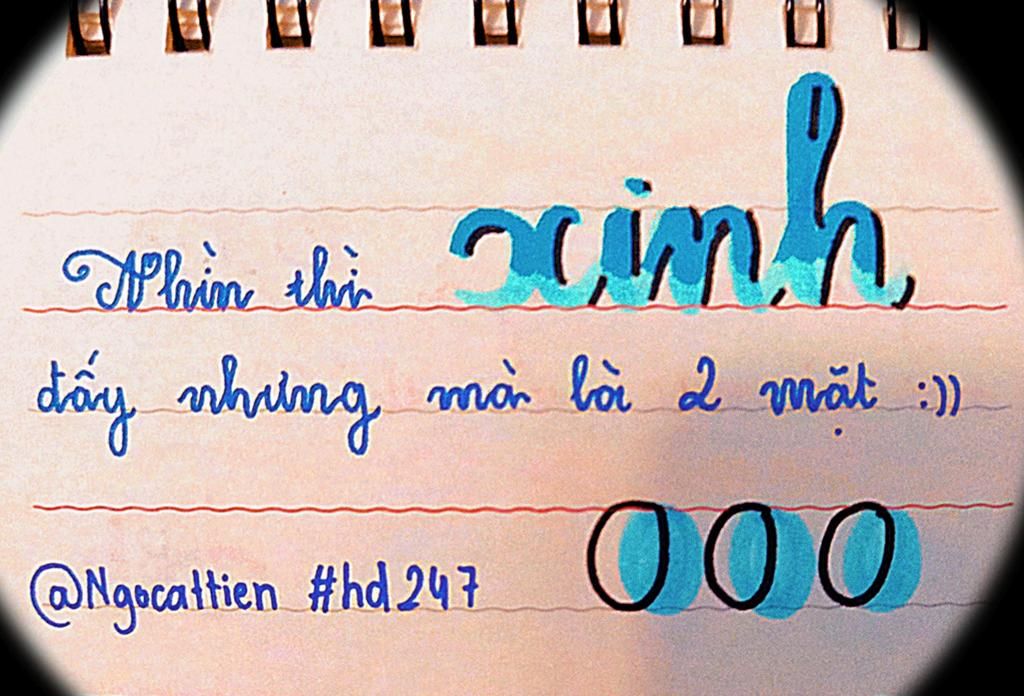 Nhìn thì xinh
đấy nhưng mà là 2 mặt :))
@Ngocattien #hd247